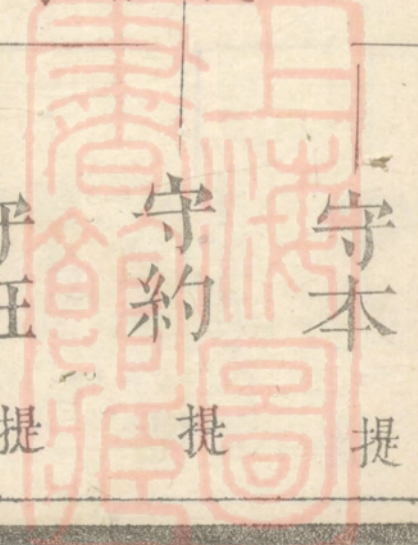 守本 提
守約 提
提
上海圖書館藏